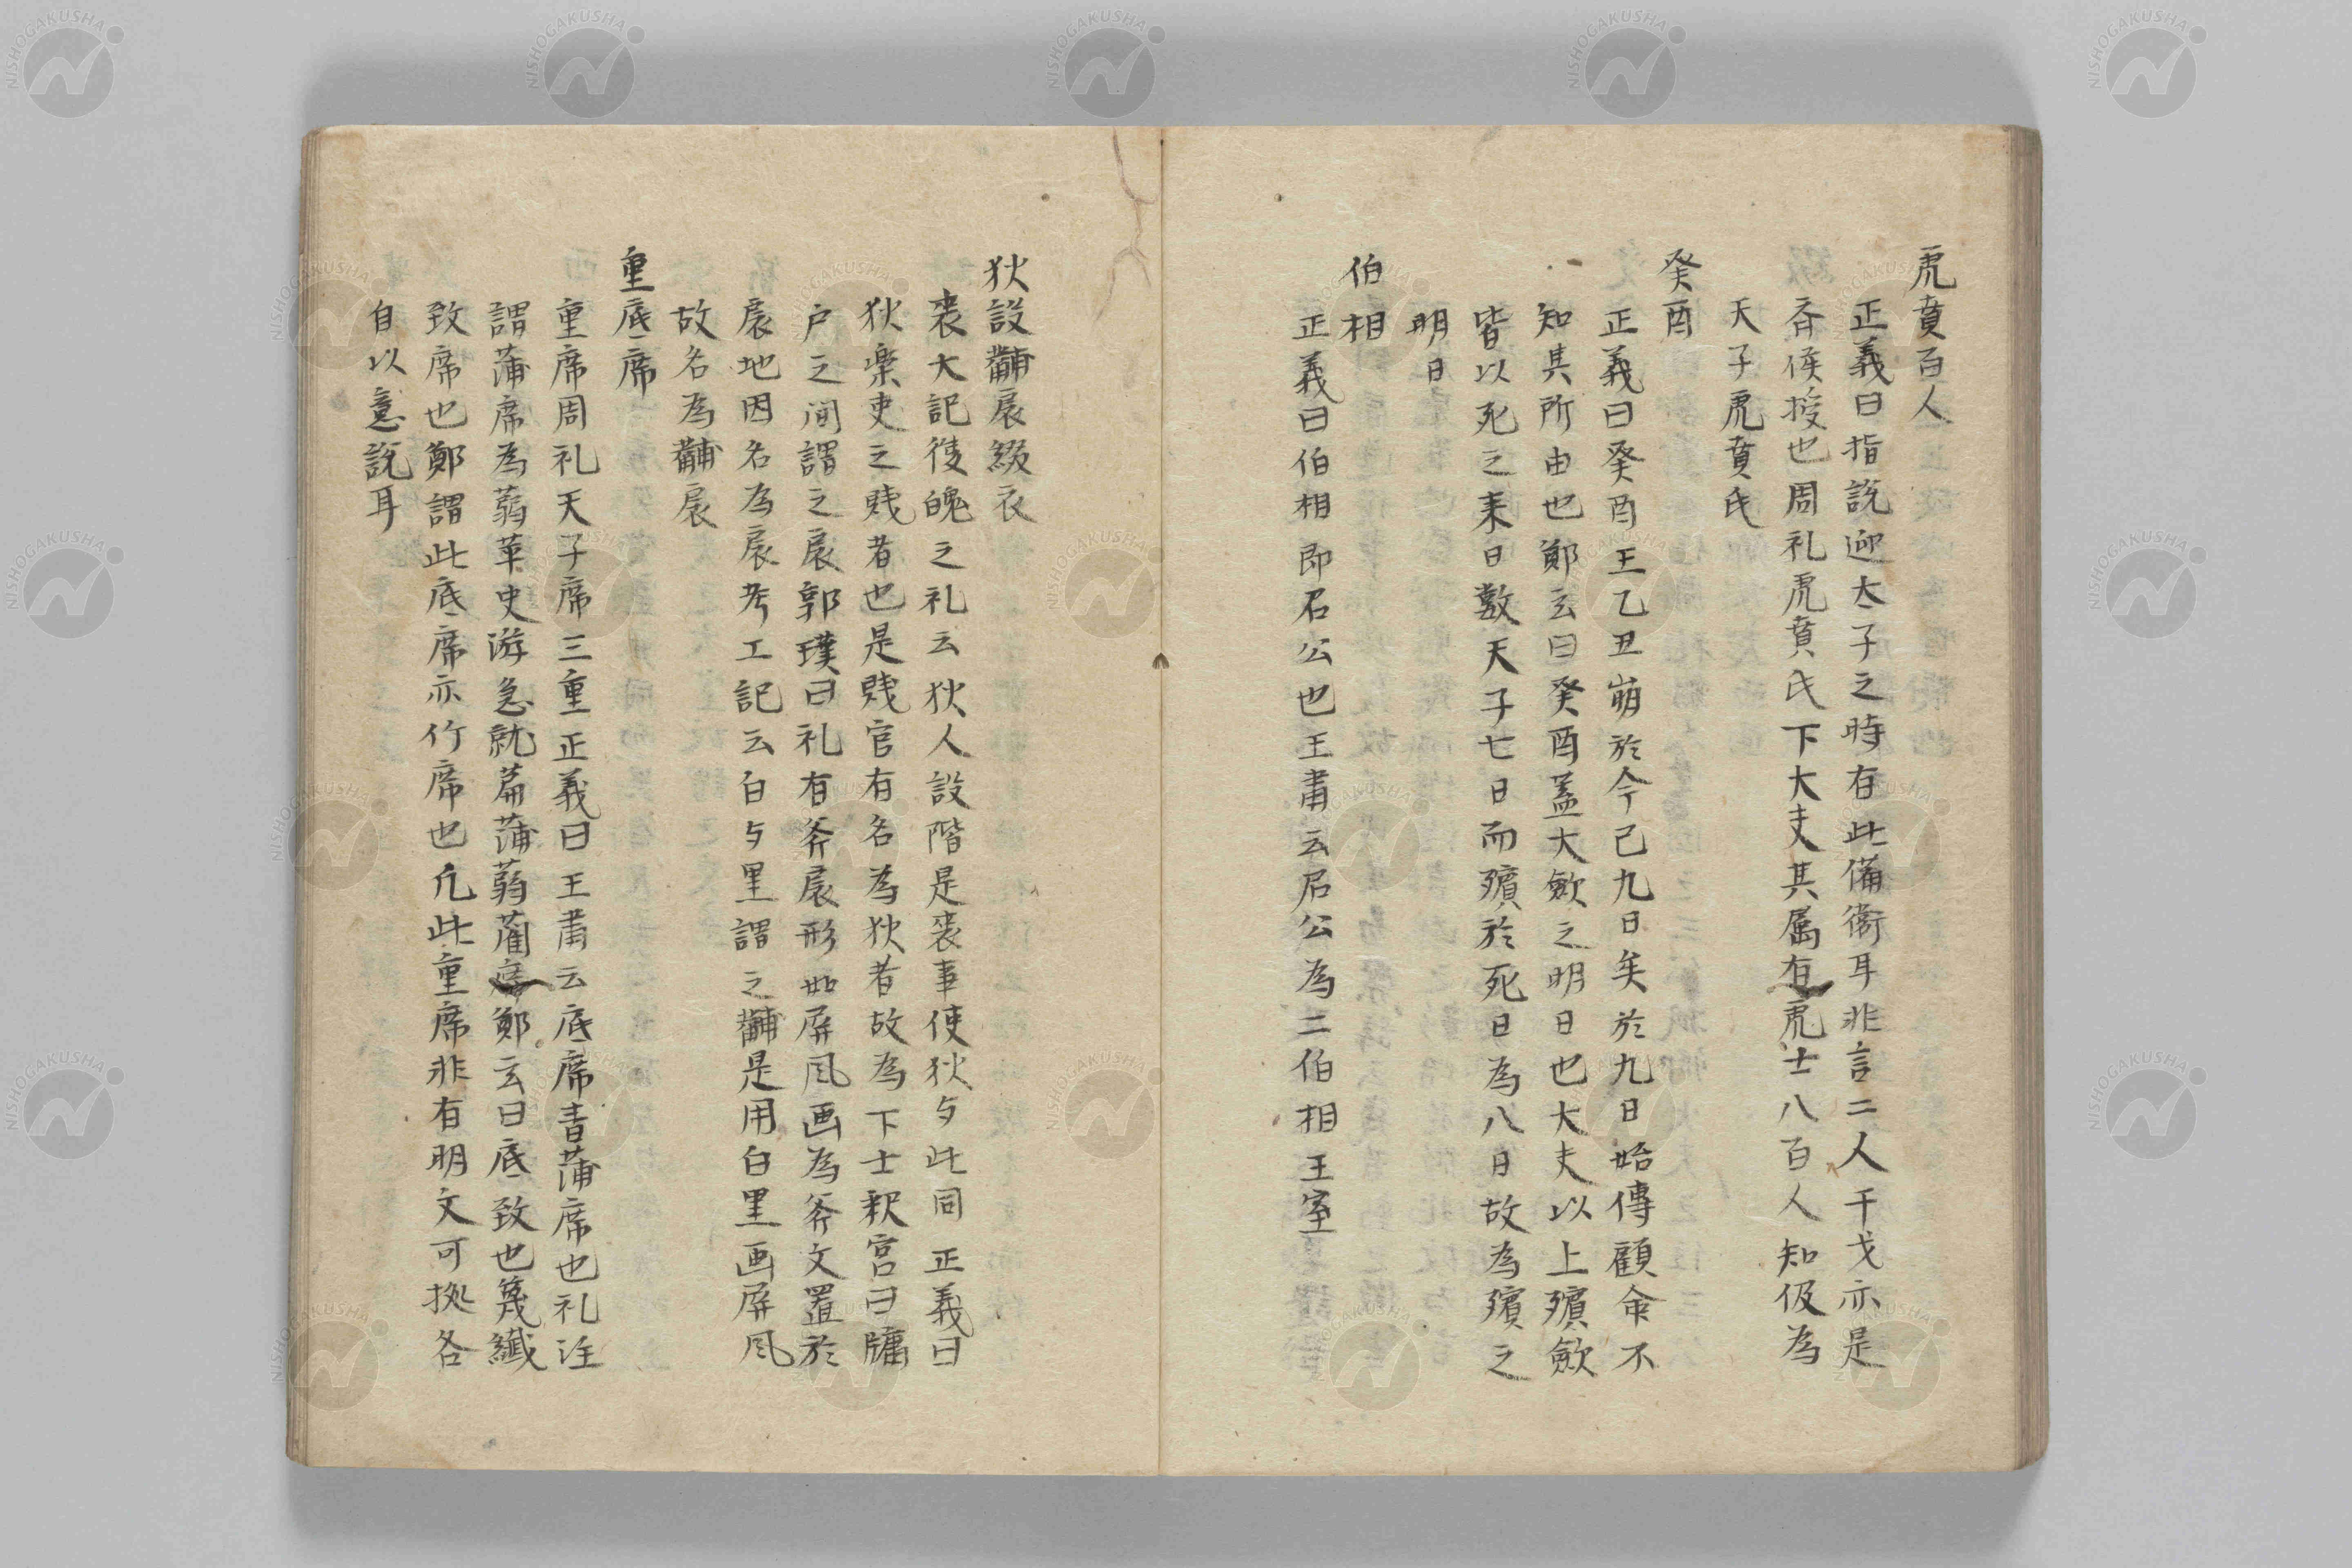 虎賁百人
正義曰指說迎太子之時有此備衛耳非言二人干戈亦是
斉侯授也周礼虎賁氏下大夫其属有虎士八百人知伋為
天子虎賁氏
癸酉
正義曰癸酉王乙丑崩於今已九日矣於九日始傳顧命不
知其所由也鄭玄曰癸酉蓋大歛之明日也大夫以上殯歛
皆以死之来日數天子七日而殯於死日為八日故為殯之
明日
伯相
正義曰伯相即召公也王肅云召公為二伯相王室
狄設黼扆綴衣
喪大記復魄之礼云狄人設階是喪事使狄与此同正義曰
狄楽吏之賎者也是賎官有名為狄者故為下士釈宮曰牖
户之间謂之扆郭璞曰礼有斧扆形如屏風画為斧文置於
扆地因名為扆考工記云白与黒謂之黼是用白黒画屏風
故名為黼扆
重底席
重席周礼天子席三重正義曰王肅云底席青蒲席也礼注
謂蒲席為蒻苹史游急就篇蒲蒻藺席鄭玄曰底致也篾纖
致席也鄭謂此底席亦竹席也凡此重席非有明文可拠各
自以意説耳
NISHOGAKUSHA